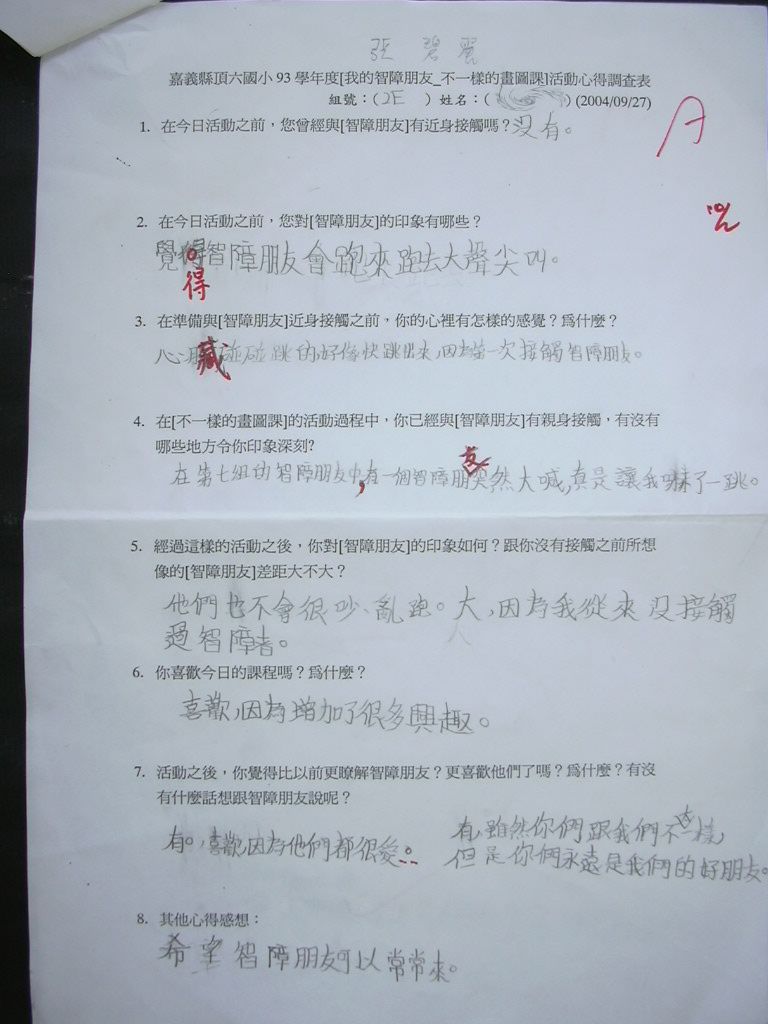 張碧麗
嘉義縣頂六國小 93 學年度[我的智障朋友_不一樣的畫圖課]活動心得調查表
組號：( 2E ) 姓名：( ) (2004/09/27)
1. 在今日活動之前，您曾經與[智障朋友]有近身接觸嗎？沒有。
A
2. 在今日活動之前，您對[智障朋友]的印象有哪些？
覺得智障朋友會跑來跑去大聲尖叫。
得
3. 在準備與[智障朋友]近身接觸之前，你的心裡有怎樣的感覺？爲什麼？
心臟碰碰跳的，好像快跳出來，因為第一次接觸智障朋友。
4. 在[不一樣的畫圖課]的活動過程中，你已經與[智障朋友]有親身接觸，有沒有
哪些地方令你印象深刻?
在第七組的智障朋友中，有一個智障朋友突然大喊，真是讓我嚇了一跳。
5. 經過這樣的活動之後，你對[智障朋友]的印象如何？跟你沒有接觸之前所想
像的[智障朋友]差距大不大？
他們也不會很吵、亂跑。大，因為我從來沒接觸
過智障者。
6. 你喜歡今日的課程嗎？爲什麼？
喜歡，因為增加了很多興趣。
7. 活動之後，你覺得比以前更瞭解智障朋友？更喜歡他們了嗎？爲什麼？有沒
有什麼話想跟智障朋友說呢？
有。喜歡，因為他們都很 。 有，雖然你們跟我們不一樣，
但是你們永遠是我們的好朋友。
8. 其他心得感想：
希望智障朋友可以常常來。